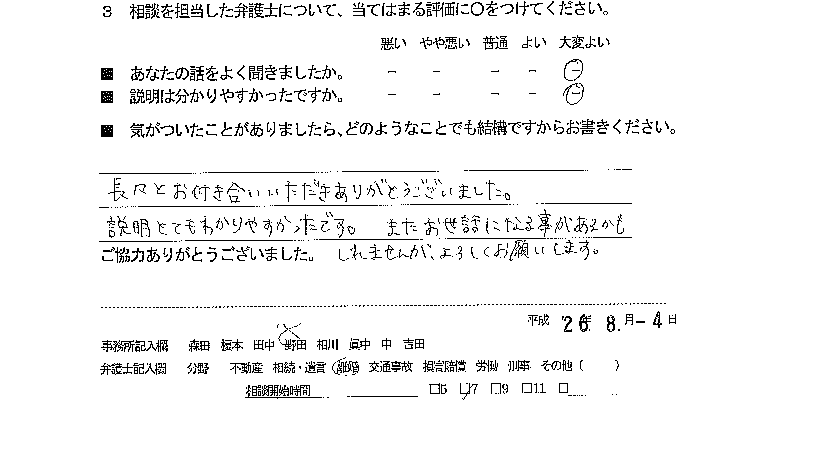 3 相談を担当した弁護士について、当てはまる評価に○をつけてください。
悪い やや悪い 普通 よい 大変よい
■ あなたの話をよく聞きましたか。 － － － － －
■ 説明は分かりやすかったですか。 － － － － －
■ 気がついたことがありましたら、どのようなことでも結構ですからお書きください。
長々とお付き合いいただきありがとうございました。
説明とてもわかりやすかったです。 またお世話になる事があるかも
ご協力ありがとうございました。 しれませんが、よろしくお願いします。
平成 26年 8月-4日
事務所記入欄 森田 榎本 田中 野田 相川 眞中 中 吉田
弁護士記入欄 分野 不動産 相続・遺言 離婚 交通事故 損害賠償 労働 刑事 その他（ ）
相談開始時間 □5 □7 □9 □11 □